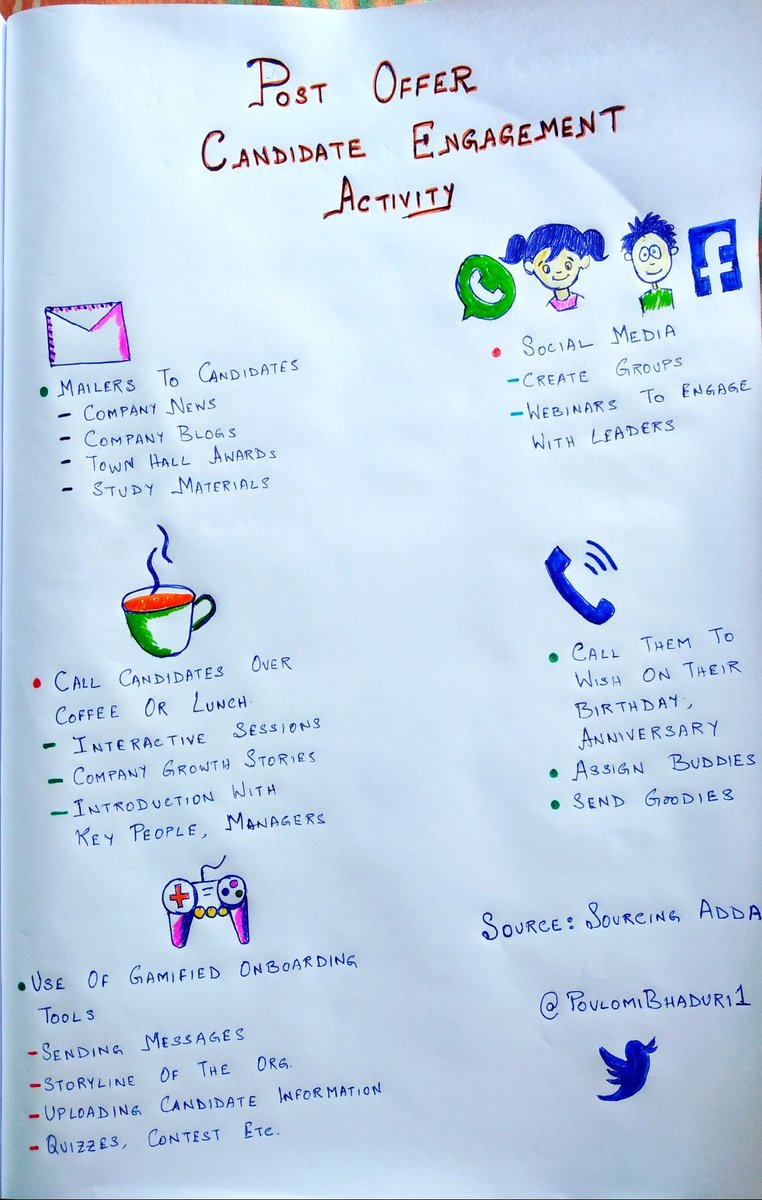 POST OFFER
CANDIDATE ENGAGEMENT
ACTIVITY
• MAILERS TO CANDIDATES
- COMPANY NEWS
- COMPANY BLOGS
- TOWN HALL AWARDS
- STUDY MATERIALS
• SOCIAL MEDIA
- CREATE GROUPS
- WEBINARS TO ENGAGE
WITH LEADERS
• CALL CANDIDATES OVER
COFFEE OR LUNCH.
- INTERACTIVE SESSIONS
- COMPANY GROWTH STORIES
- INTRODUCTION WITH
KEY PEOPLE, MANAGERS
• CALL THEM TO
WISH ON THEIR
BIRTHDAY,
ANNIVERSARY
• ASSIGN BUDDIES
• SEND GOODIES
• USE OF GAMIFIED ONBOARDING
TOOLS
- SENDING MESSAGES
- STORYLINE OF THE ORG.
- UPLOADING CANDIDATE INFORMATION
- QUIZZES, CONTEST ETC.
SOURCE: SOURCING ADDA
@POULOMIBHADURI1